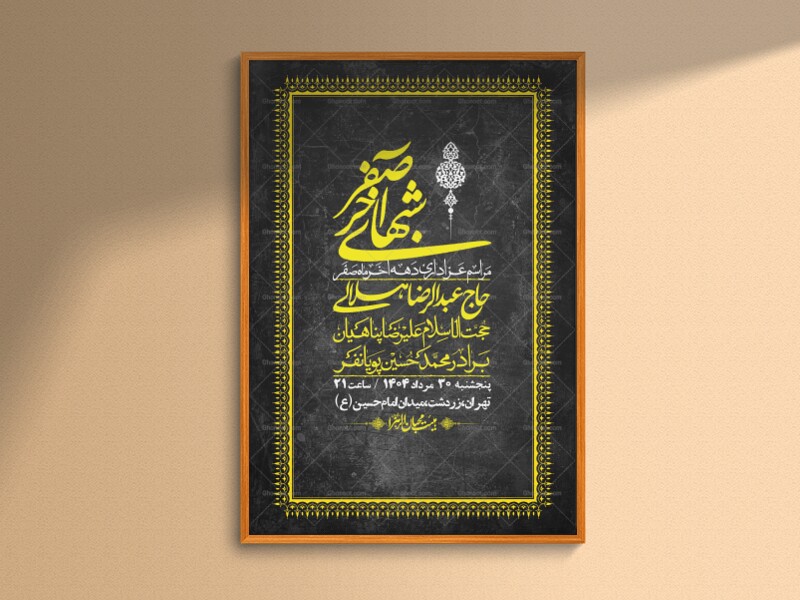 شبهای آخر صفر
مراسم عزاداری دهه آخر ماه صفر
حاج عبدالرضا هلالی
حجت الاسلام علیرضا پناهیان
برادر محمد حسین پویانفر
پنجشنبه ۳۰ مرداد ۱۴۰۴ / ساعت ۲۱
تهران، زردشت، میدان امام حسین (ع)
هیئت محبان الزهرا